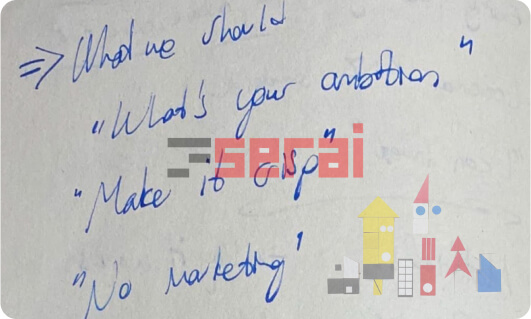 ⇒ What we should
"What's your ambitions"
"Make it crisp"
"No marketing"
serai